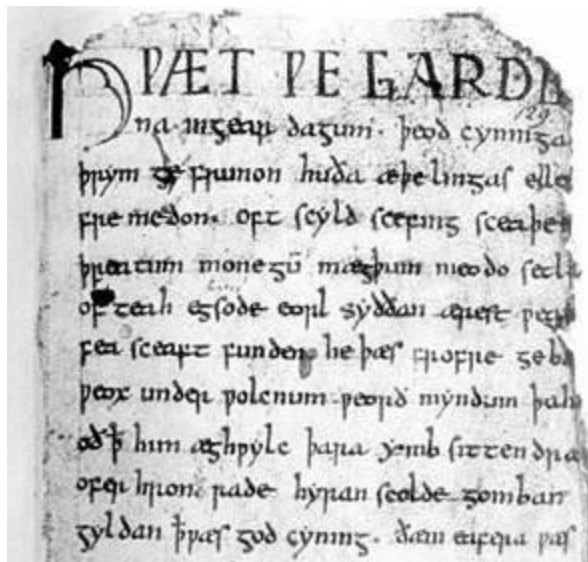 HǷÆT ǷE GARDE
129
na ingear dagum. þeod cyninga
þrym ge frunon huða æþelingas elle
fre medon. oft scyld scefing sceaþe
þreatum monegū mægþum meodo setla
of teah egsode eorl syððan ærest ƿear
fea sceaft funden he þæs frofre geba
ƿeox under ƿolcnum ƿeorð myndum þah
oð ꝥ him æghƿylc þara ymb sittendra
ofer hron rade hyran scolde gomban
gyldan ꝥ ƿæs god cyning. ðæm eafera ƿæs